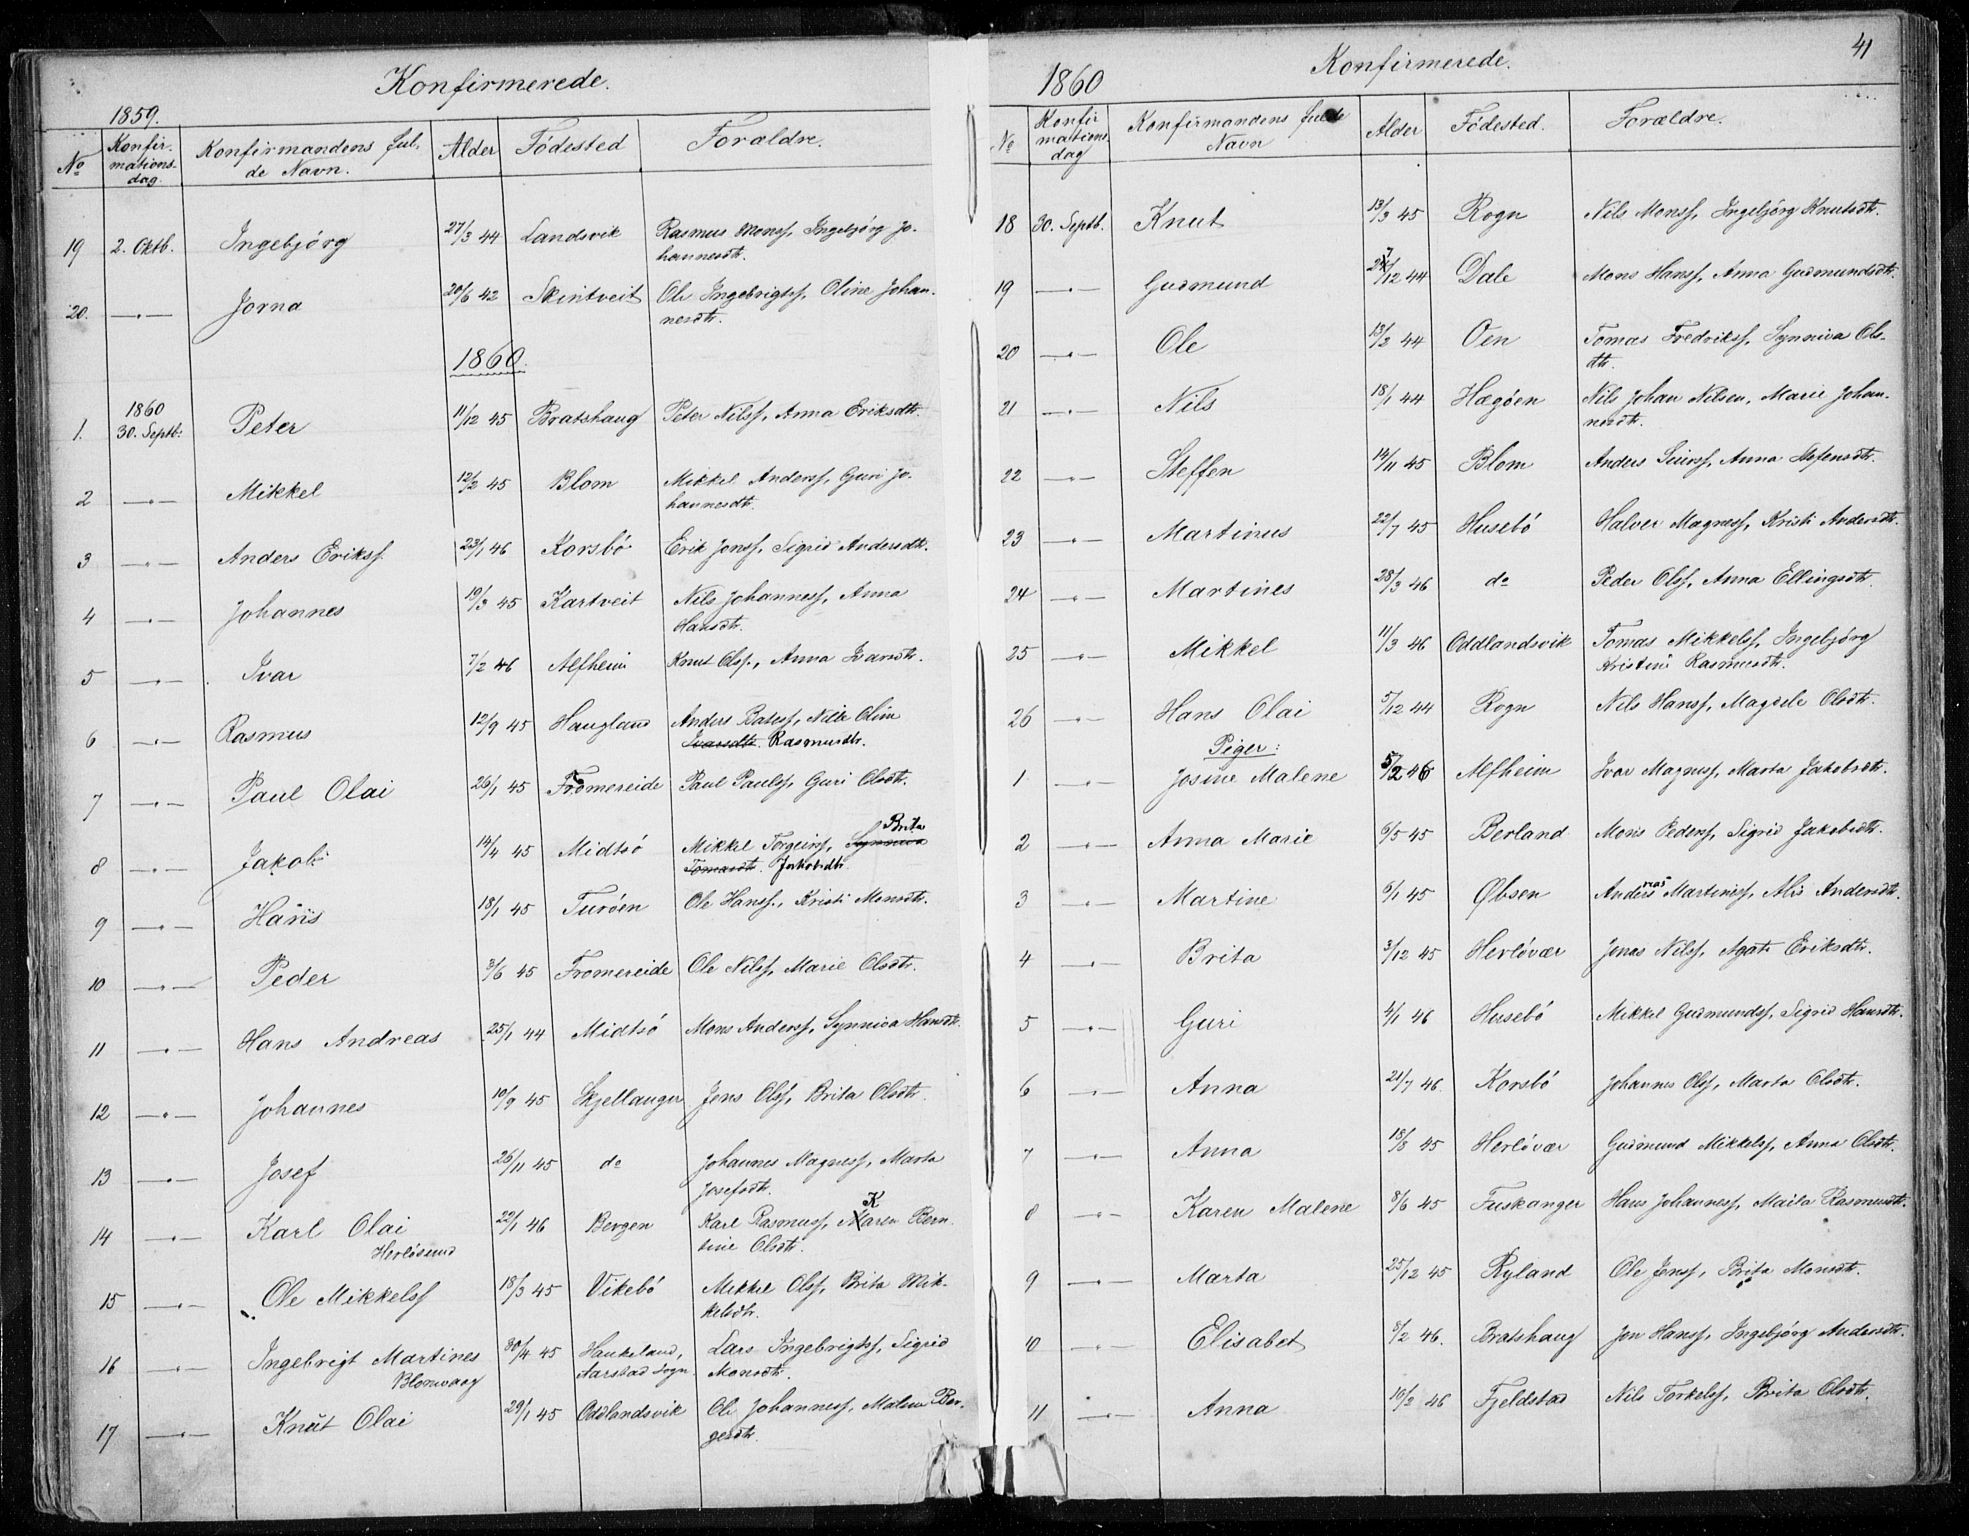 Konfirmerede.
1859.
No Konfirmationsdag. Konfirmandens fulde Navn. Alder Födested Forældre.
19 2. Oktb. Ingebjörg 27/3 44 Landsvik Rasmus Monsf, Ingebjörg Jo-
hannesdtr.
20. —„— Jorna 20/6 42 Skintveit Ole Ingebrigtsf, Oline Johan-
nesdtr.
1860.
1. 1860 30. Septb: Peter 11/12 45 Bratshaug Peter Nilsf, Anna Eriksdtr.
2 —„— Mikkel 12/2 45 Blom Mikkel Andersf, Guri Jo-
hannesdtr.
3 —„— Anders Eriksf 23/1 46 Korsbö Erik Jonsf, Sigrid Andersdtr.
4 —„— Johannes 19/3 45 Kartveit Nils Johannesf, Anna
Hansdtr.
5 —„— Ivar 7/2 46 Alfheim Knut Olsf., Anna Ivarsdtr.
6 —„— Rasmus 12/9 45 Haugland Anders Batesf, Nille Oline
Ivarsdtr. Rasmusdtr.
7 —„— Paul Olai 26/1 45 Fromereide Paul Paulsf, Guri Olsdtr.
8 —„— Jakob 14/4 45 Midtsö Mikkel Torgeirsf, Synniva Brita
Tomasdtr. Jakobsdtr.
9 —„— Hans 18/1 45 Turöen Ole Hansf., Kristi Monsdtr.
10 —„— Peder 3/6 45 Fromereide Ole Nilsf, Marie Olsdtr.
11 —„— Hans Andreas 25/1 44 Midtsö Mons Andersf, Synniva Hansdtr.
12 —„— Johannes 10/9 45 Skjellanger Jens Olsf, Brita Olsdtr.
13 —„— Josef 26/11 45 do Johannes Magnesf, Marta
Josefsdtr.
14 —„— Karl Olai 22/1 46 Bergen Karl Rasmusf, Karen Bern-
Herlösund tine Olsdtr.
15 —„— Ole Mikkelsf 18/3 45 Vikebö Mikkel Olsf, Brita Mik-
kelsdtr.
16 —„— Ingebrigt Martines 30/4 45 Haukeland, Lars Ingebrigtsf, Sigrid
Blomvaag Aarstad Sogn. Monsdtr.
17 —„— Knut Olai 29/1 45 Oddlandsvik Ole Johannesf, Malene Ber-
gesdtr.
41
Konfirmerede.
1860
No Konfirmationsdag Konfirmandens fulde Navn Alder Födested. Forældre.
18 30. Septb. Knut 13/3 45 Rogn Nils Monsf, Ingebjörg Knutsdtr.
19 —„— Gudmund /12 44 Dale Mons Hansf, Anna Gudmundsdtr.
20 —„— Ole 13/2 44 Oen Tomas Fredriksf, Synniva Ols-
dtr.
21 —„— Nils 18/1 44 Hægöen Nils Johan Nilsen, Marie Johan-
nesdtr.
22 —„— Steffen 14/11 45 Blom Anders Siursf, Anna Stefensdtr.
23 —„— Martinus 22/7 45 Husebö Halver Magnesf, Kristi Andersdtr.
24 —„— Martines 28/3 46 do Peder Olsf, Anna Ellingsdtr.
25 —„— Mikkel 11/3 46 Oddlandsvik Tomas Mikkelsf, Ingebjörg
Kristine Rasmusdtr.
26 —„— Hans Olai 5/12 44 Rogn Nils Hansf, Magdele Olsdtr.
Piger:
1 —„— Josine Malene 5/2 46 Alfheim Ivar Magnesf, Marta Jakobsdtr.
2 —„— Anna Marie 6/5 45 Berland Mons Pedersf, Sigrid Jakobsdtr.
3 —„— Martine 6/1 45 Øbsen Anders Martinsf, Alis Andersdtr.
4 —„— Brita 3/12 45 Herlövær Jonas Nilsf, Agate Eriksdtr.
5 —„— Guri 4/1 46 Husebö Mikkel Gudmundsf, Sigrid Hansdtr.
6 —„— Anna 21/7 46 Korsbö Johannes Olsf, Marta Olsdtr.
7 —„— Anna 18/8 45 Herlövær Gudmund Mikkelsf, Anna Olsdtr.
8 —„— Karen Malene 8/6 45 Fuskanger Hans Johannesf, Marta Rasmusdtr.
9 —„— Marta 25/12 45 Ryland Ole Jensf, Brita Monsdtr.
10 —„— Elisabet 8/2 46. Bratshaug Jon Hansf, Ingebjörg Andersdtr.
11 —„— Anna 10/2 46 Fjeldstad Nils Torkelsf, Brita Olsdtr.